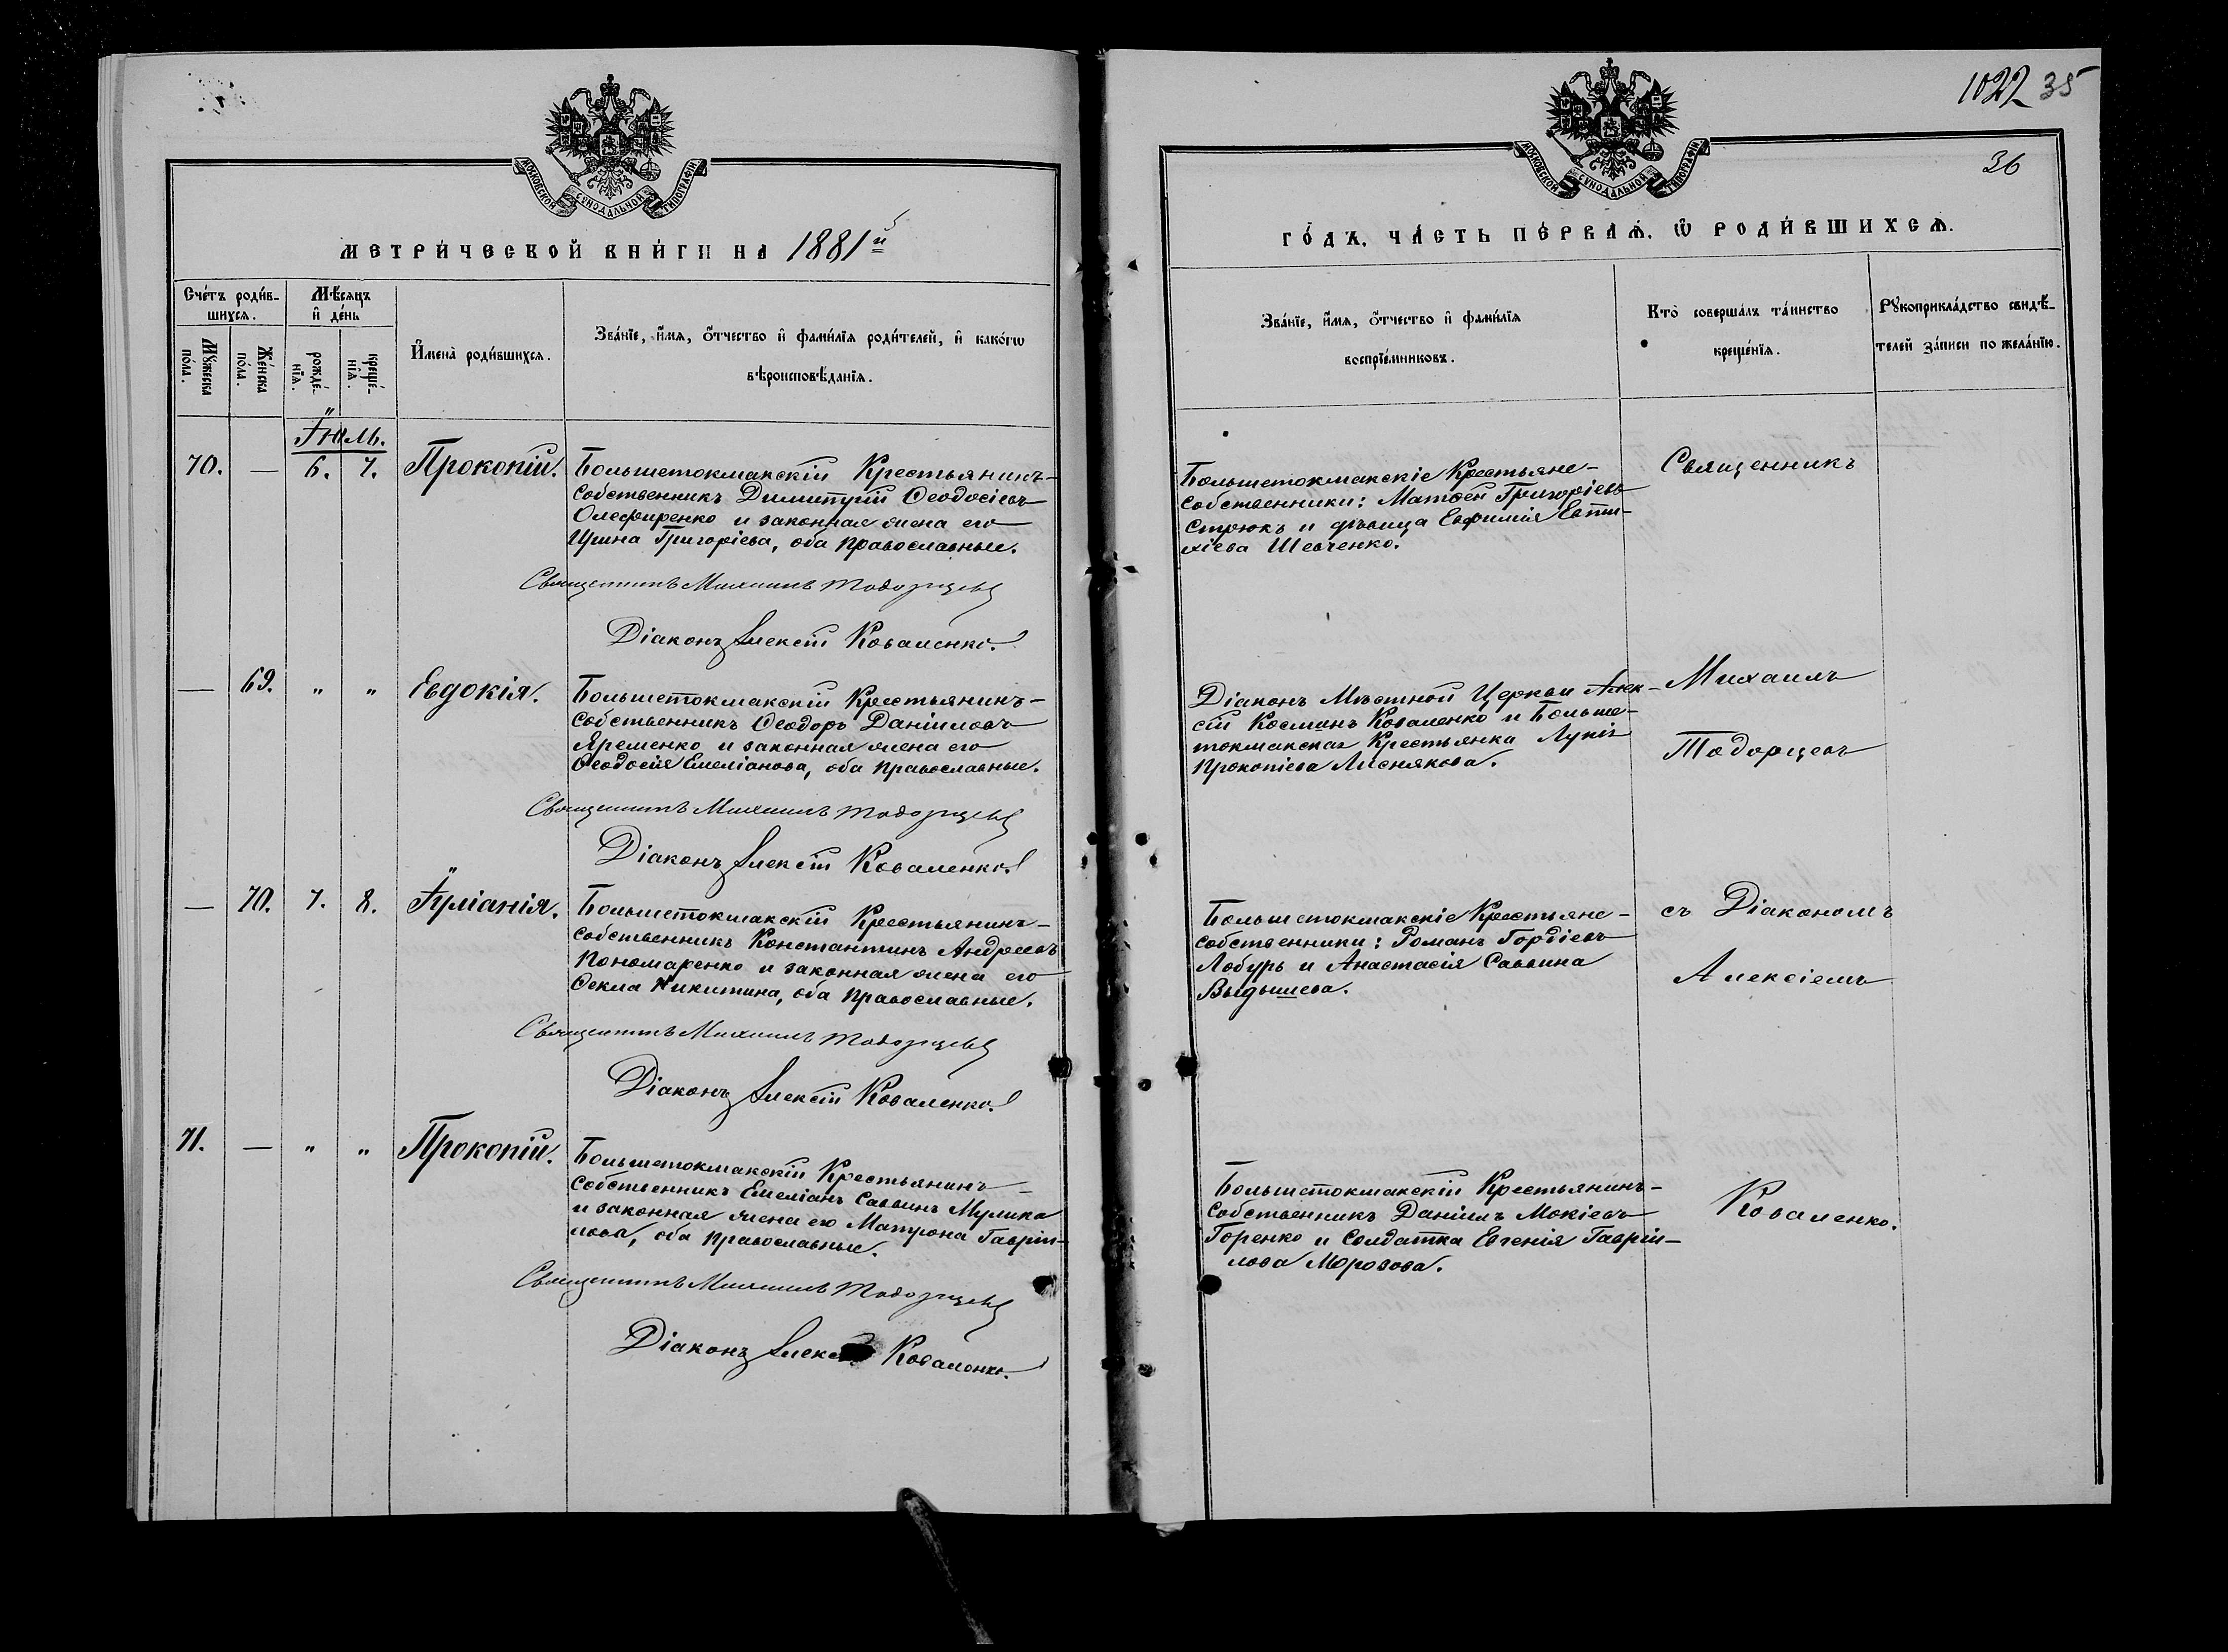 МОСКОВСКОЙ СѴНОДАЛЬНОЙ ТИПОГРАФІИ
МЕТРИ́ЧЕСКОЙ КНИ́ГИ НА 1881й
Сче́тъ роди́в-
шихся.
Мѣ́сяцъ
и҆ де́нь
Мꙋ́жеска
по́ла.
Же́нска
по́ла.
рожде́-
нїѧ.
креще́-
нїѧ.
И҆мена̀ роди́вшихся.
Зва́нїе, и҆́мя, ѻ҆́тчество и҆ фами́лїя роди́телей, и҆ како́гѡ
вѣроисповѣ́данїя.
Іюль.
70. — 6. 7. Прокопій.
Большетокмакскій Крестьянинъ-
собственникъ Димитрій Ѳеодосіевъ
Олефиренко и законная жена его
Ирина Григоріева, оба православные.
Священникъ Михаилъ Тодорцевъ
Діаконъ Алексій Коваленко.
— 69. " " Евдокія.
Большетокмакскій Крестьянинъ-
собственникъ Ѳеодоръ Даніиловъ
Яременко и законная жена его
Ѳеодосія Емеліанова, оба православные.
Священникъ Михаилъ Тодорцевъ
Діаконъ Алексій Коваленко.
— 70. 7. 8. Іуліанія.
Большетокмакскій Крестьянинъ-
собственникъ Константинъ Андреевъ
Пономаренко и законная жена его
Ѳекла Никитина, оба православные.
Священникъ Михаилъ Тодорцевъ
Діаконъ Алексій Коваленко.
71. — " " Прокопій.
Большетокмакскій Крестьянинъ-
собственникъ Емеліанъ Саввинъ Мулика
и законная жена его Матрона Гаврии-
лова, оба православные.
Священникъ Михаилъ Тодорцевъ
Діаконъ Коваленко.
1022 35
36
МОСКОВСКОЙ СѴНОДАЛЬНОЙ ТИПОГРАФІИ
ГО́ДЪ, ЧА́СТЬ ПЕ́РВАѦ, Ѽ РОДИ́ВШИХСѦ.
Зва́нїе, и҆́мя, ѻ҆́тчество и҆ фами́лїя
воспрїе́мниковъ.
Кто̀ соверша́лъ та́инство
креще́нїя.
Рꙋкоприкла́дство свидѣ́-
телей за́писи по жела́нїю.
Большетокмакскіе Крестьяне-
собственники: Матѳей Григоріевъ
Стрюкъ и дѣвица Евфимія Евти-
хіева Шевченко.
Священникъ
Діаконъ Мѣстной Церкви Алек-
сій Косминъ Коваленко и Больше-
токмакская Крестьянка Лукія
Прокопіева Лиснякова.
Михаилъ
Тодорцевъ
Большетокмакскіе Крестьяне-
собственники: Романъ Гордіевъ
Лобуръ и Анастасія Саввина
Выдышева.
съ Діакономъ
Алексіемъ
Большетокмакскій Крестьянинъ-
собственникъ Даніилъ Мокіевъ
Горенко и Солдатка Евгенія Гаврии-
лова Морозова.
Коваленко.